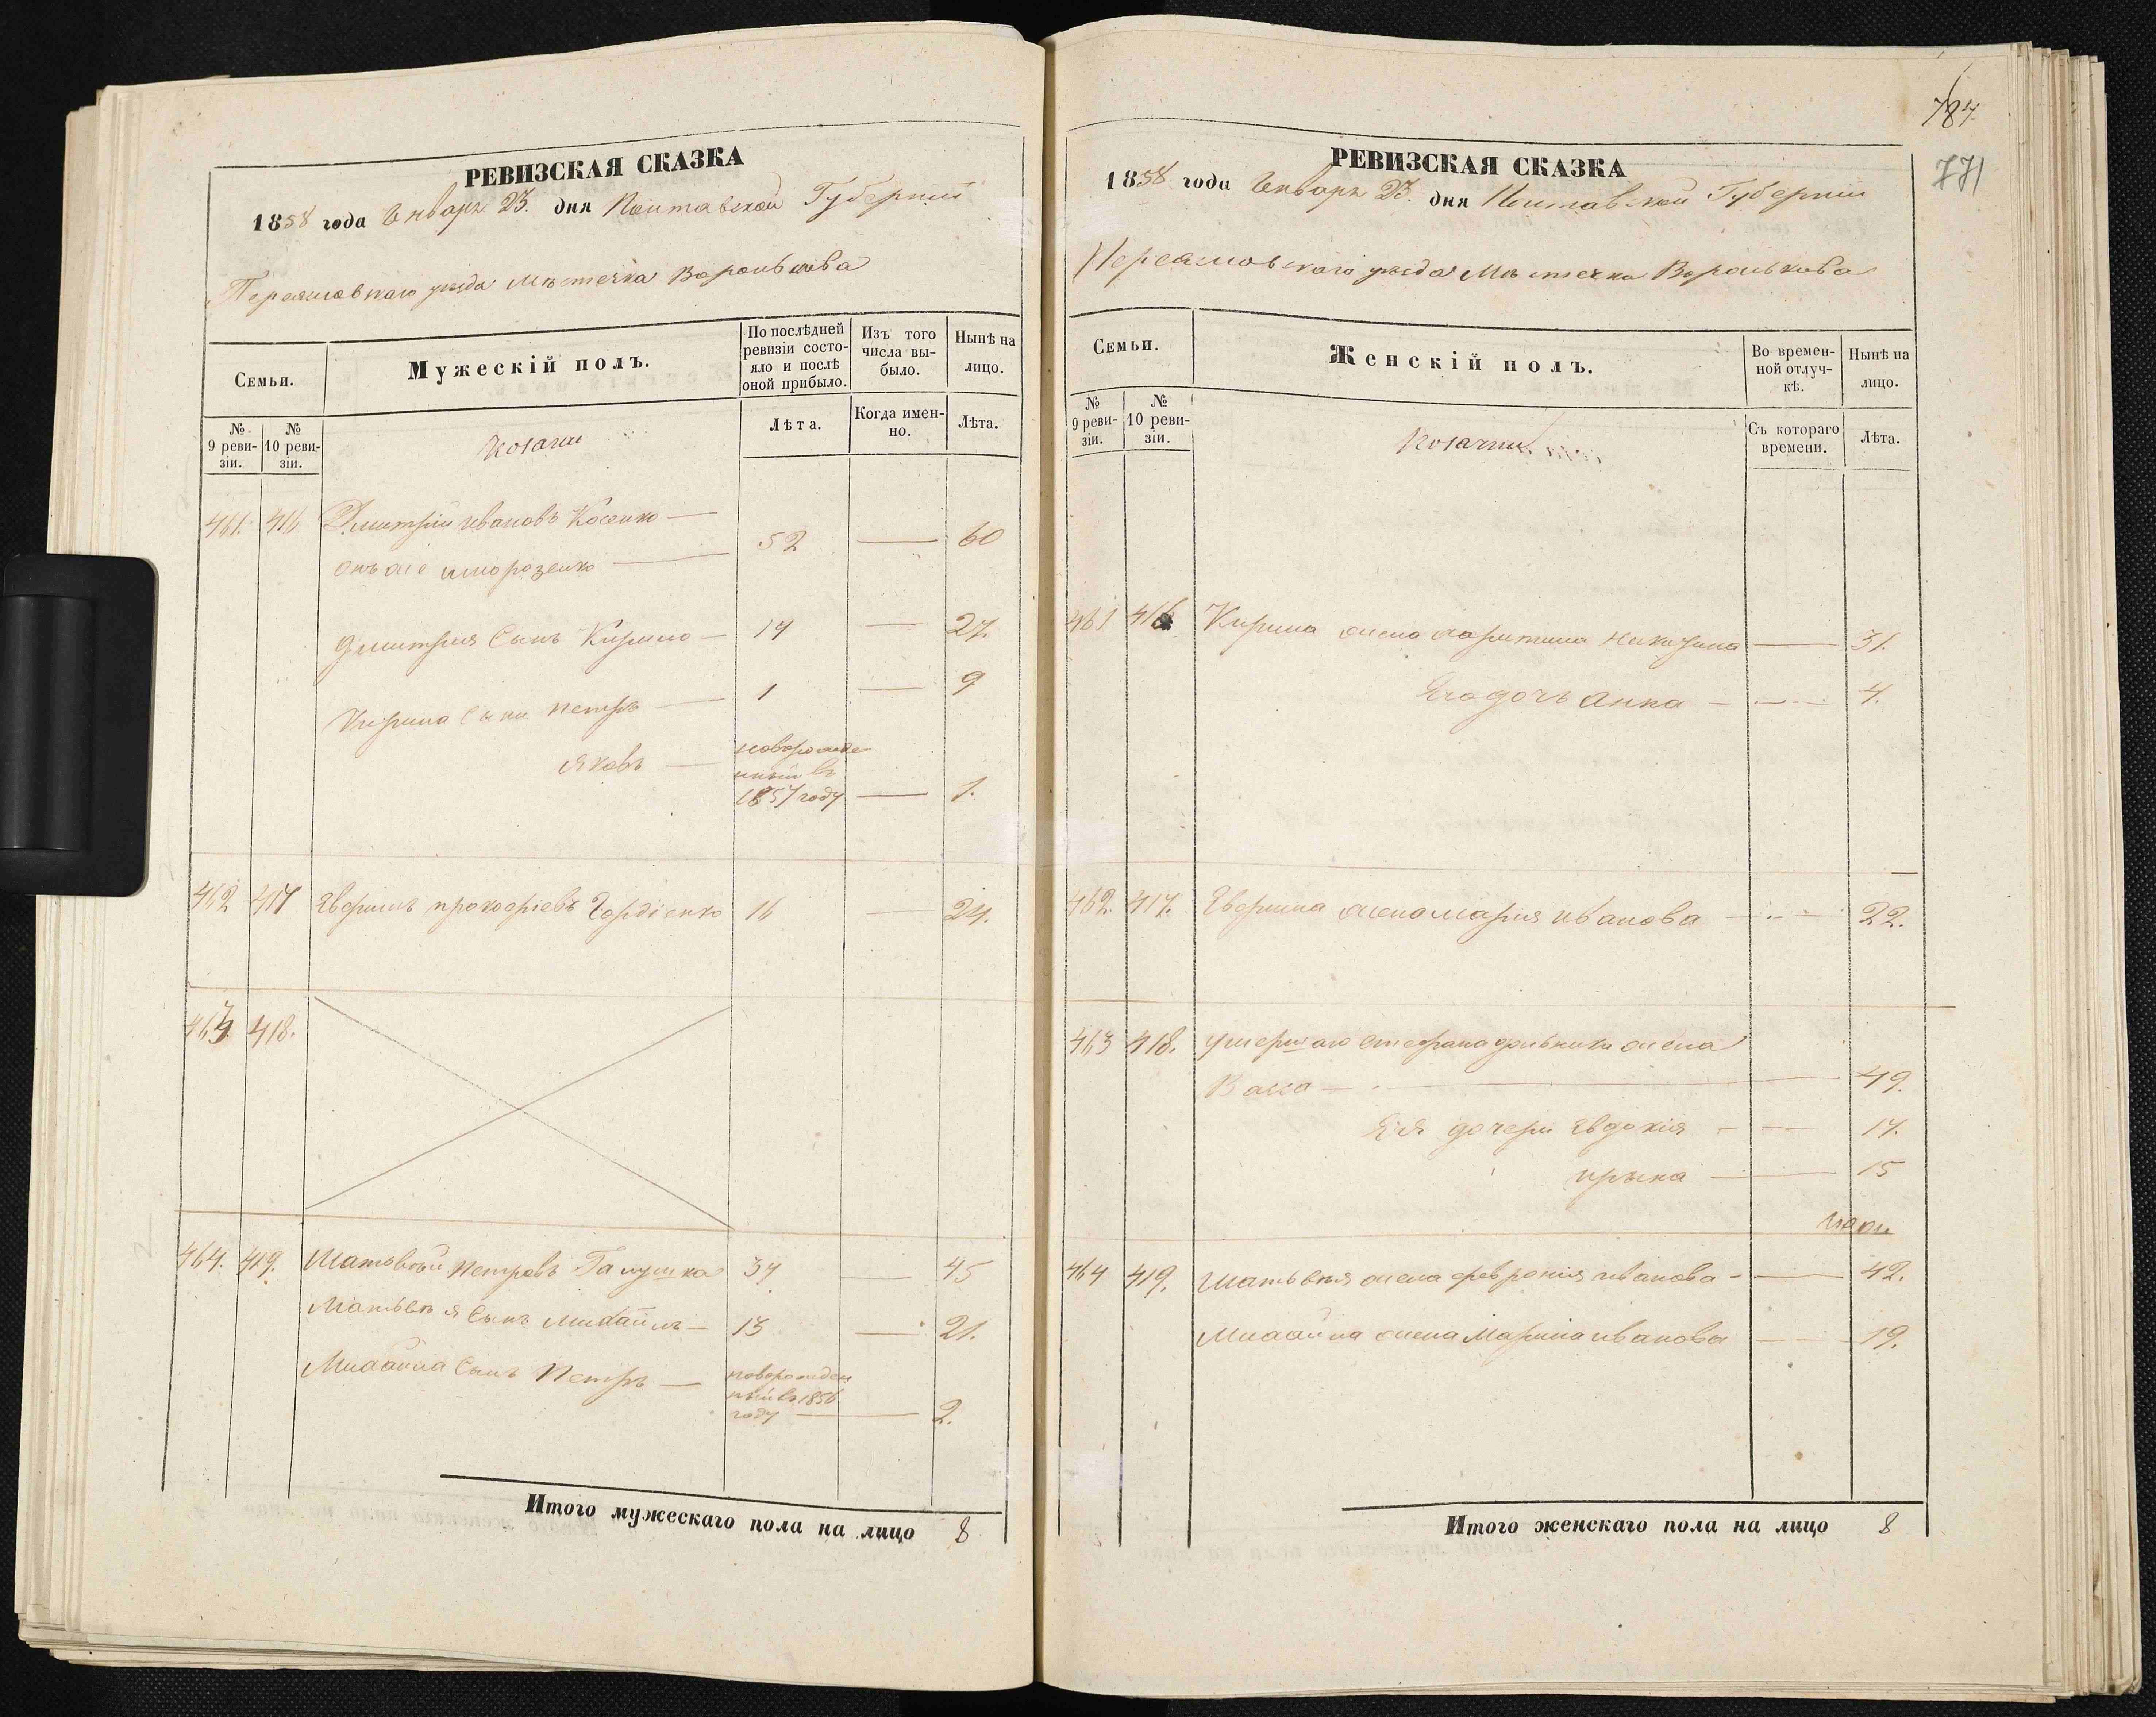 РЕВИЗСКАЯ СКАЗКА
1858 года Генваря 23. дня Полтавской Губерніи
Переяславскаго уезда Мѣстечка Воронькова
Семьи.
Мужескій полъ.
По послѣдней ревизіи состояло и послѣ оной прибыло.
Изъ того числа выбыло.
Нынѣ на лицо.
№ 9 ревизіи.
№ 10 ревизіи.
Козаки
Лѣта.
Когда именно.
Лѣта.
461. 416 Дмитрій Ивановъ Косенко —
онъ же Морозенко — 52 — 60
Дмитрія Сынъ Кирило — 19 — 27.
Кирила Сыны Петръ — 1 — 9
Яковъ — новорожденный въ 1857 году — 1.
462 417 Ефримъ Прокофіевъ Гордіенко 16 — 24.
463. 418.
464. 419. Матвѣй Петровъ Галушка 37 — 45
Матвѣя Сынъ Михайло — 13 — 21.
Михайла Сынъ Петръ — новорожденный въ 1856 году — 2.
Итого мужескаго пола на лицо 8
784
771
РЕВИЗСКАЯ СКАЗКА
1858 года Генваря 23. дня Полтавской Губерніи
Переяславскаго уезда Мѣстечка Воронькова
Семьи.
Женскій полъ.
Во временной отлучкѣ.
Нынѣ на лицо.
№ 9 ревизіи.
№ 10 ревизіи.
Козачки
Съ котораго времени.
Лѣта.
461 416 Кирила жена Харитина — 31.
Его дочь Анна — 4.
462. 417. Ефрима жена Марія Иванова — 22.
463 418. Умершаго Стефана жена
Васса — 49.
Ея дочери Евдокія — 17.
Ирына — 15
464 419. Матвѣя жена Февронія Иванова — 42.
Михайла жена Марина Иванова — 19.
Итого женскаго пола на лицо 8